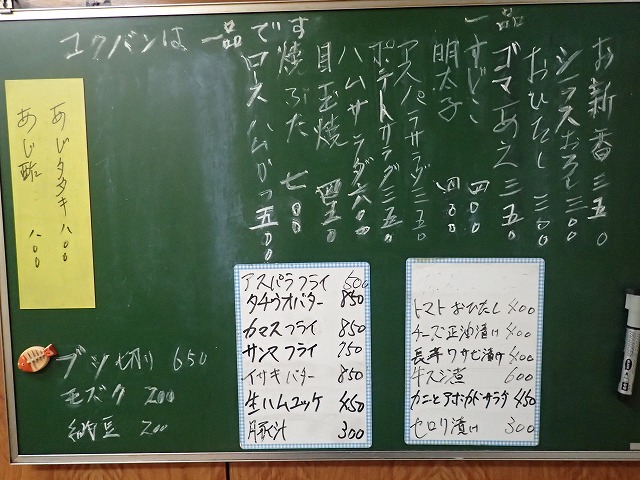 コクバンは 一品 です
一品
お新香 三五〇
シラスおろし 三〇〇
おひたし 三〇〇
ゴマあえ 三五〇
すじこ 四〇〇
明太子 四〇〇
アスパラサラダ 三五〇
ポテトサラダ 三五〇
ハムサラダ 六〇〇
目玉焼 四五〇
焼ぶた 七〇〇
ロースハムかつ 五〇〇
あじタタキ 八〇〇
あじ酢 八〇〇
ブツ切り 650
モズク 200
納豆 200
アスパラフライ 500
タチウオバター 850
カマスフライ 850
サンマフライ 750
イサキバター 850
生ハムユッケ 450
豚汁 300
トマトおひたし 400
チーズ正油漬け 400
長芋ワサビ漬け 400
牛スジ煮 600
カニとアボカドサラダ 450
セロリ漬け 300